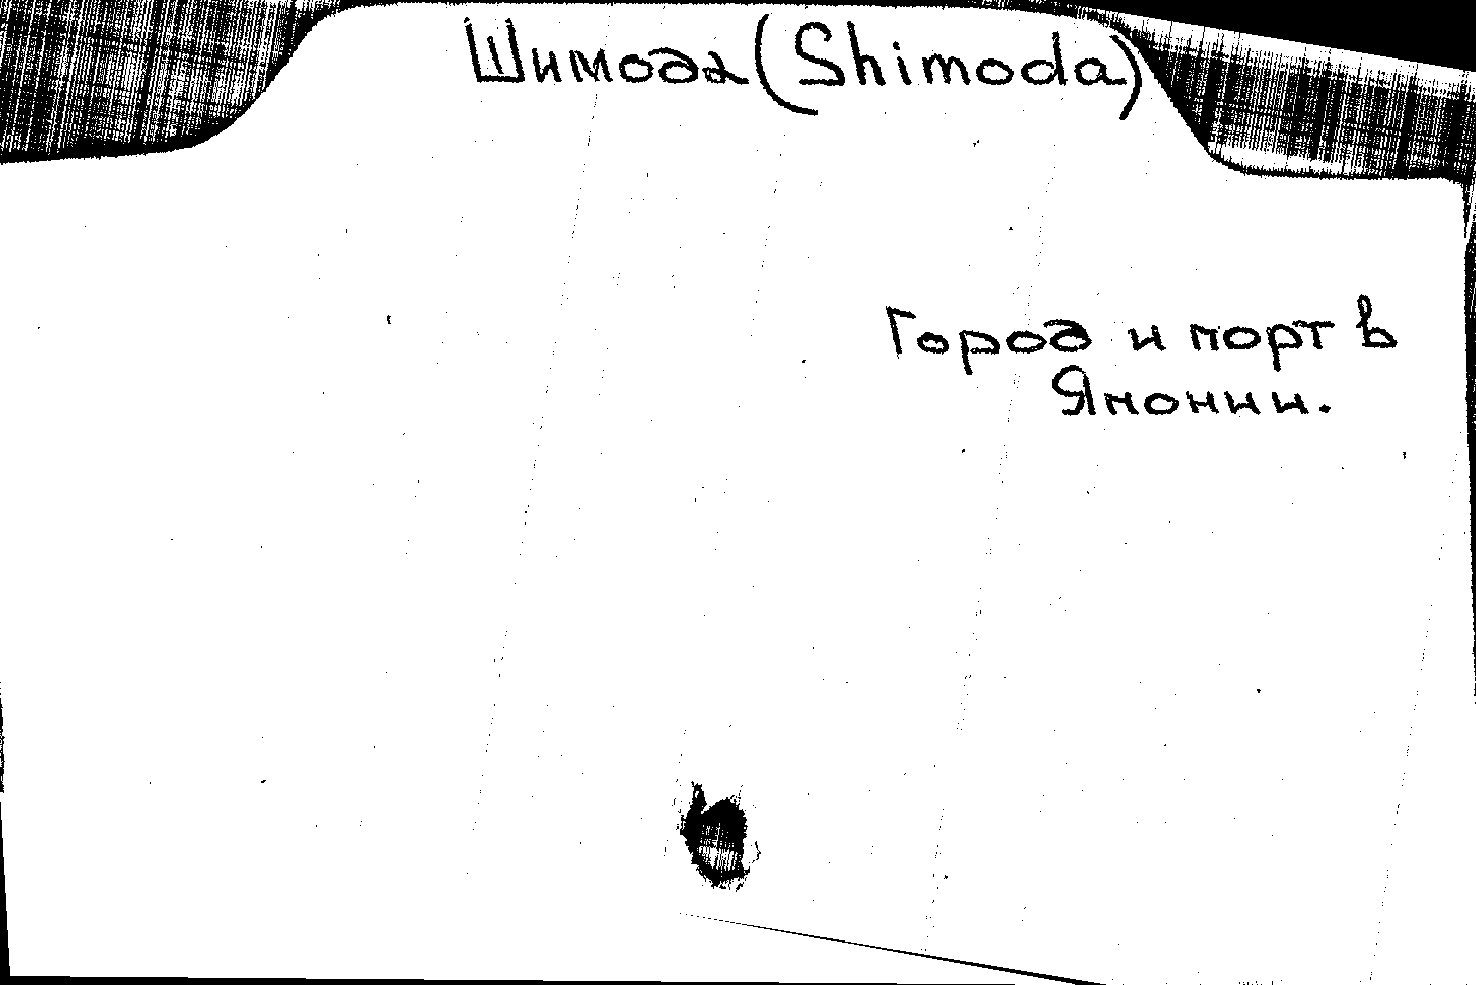 Шимода (Shimoda)
Город и порт в
Японии.